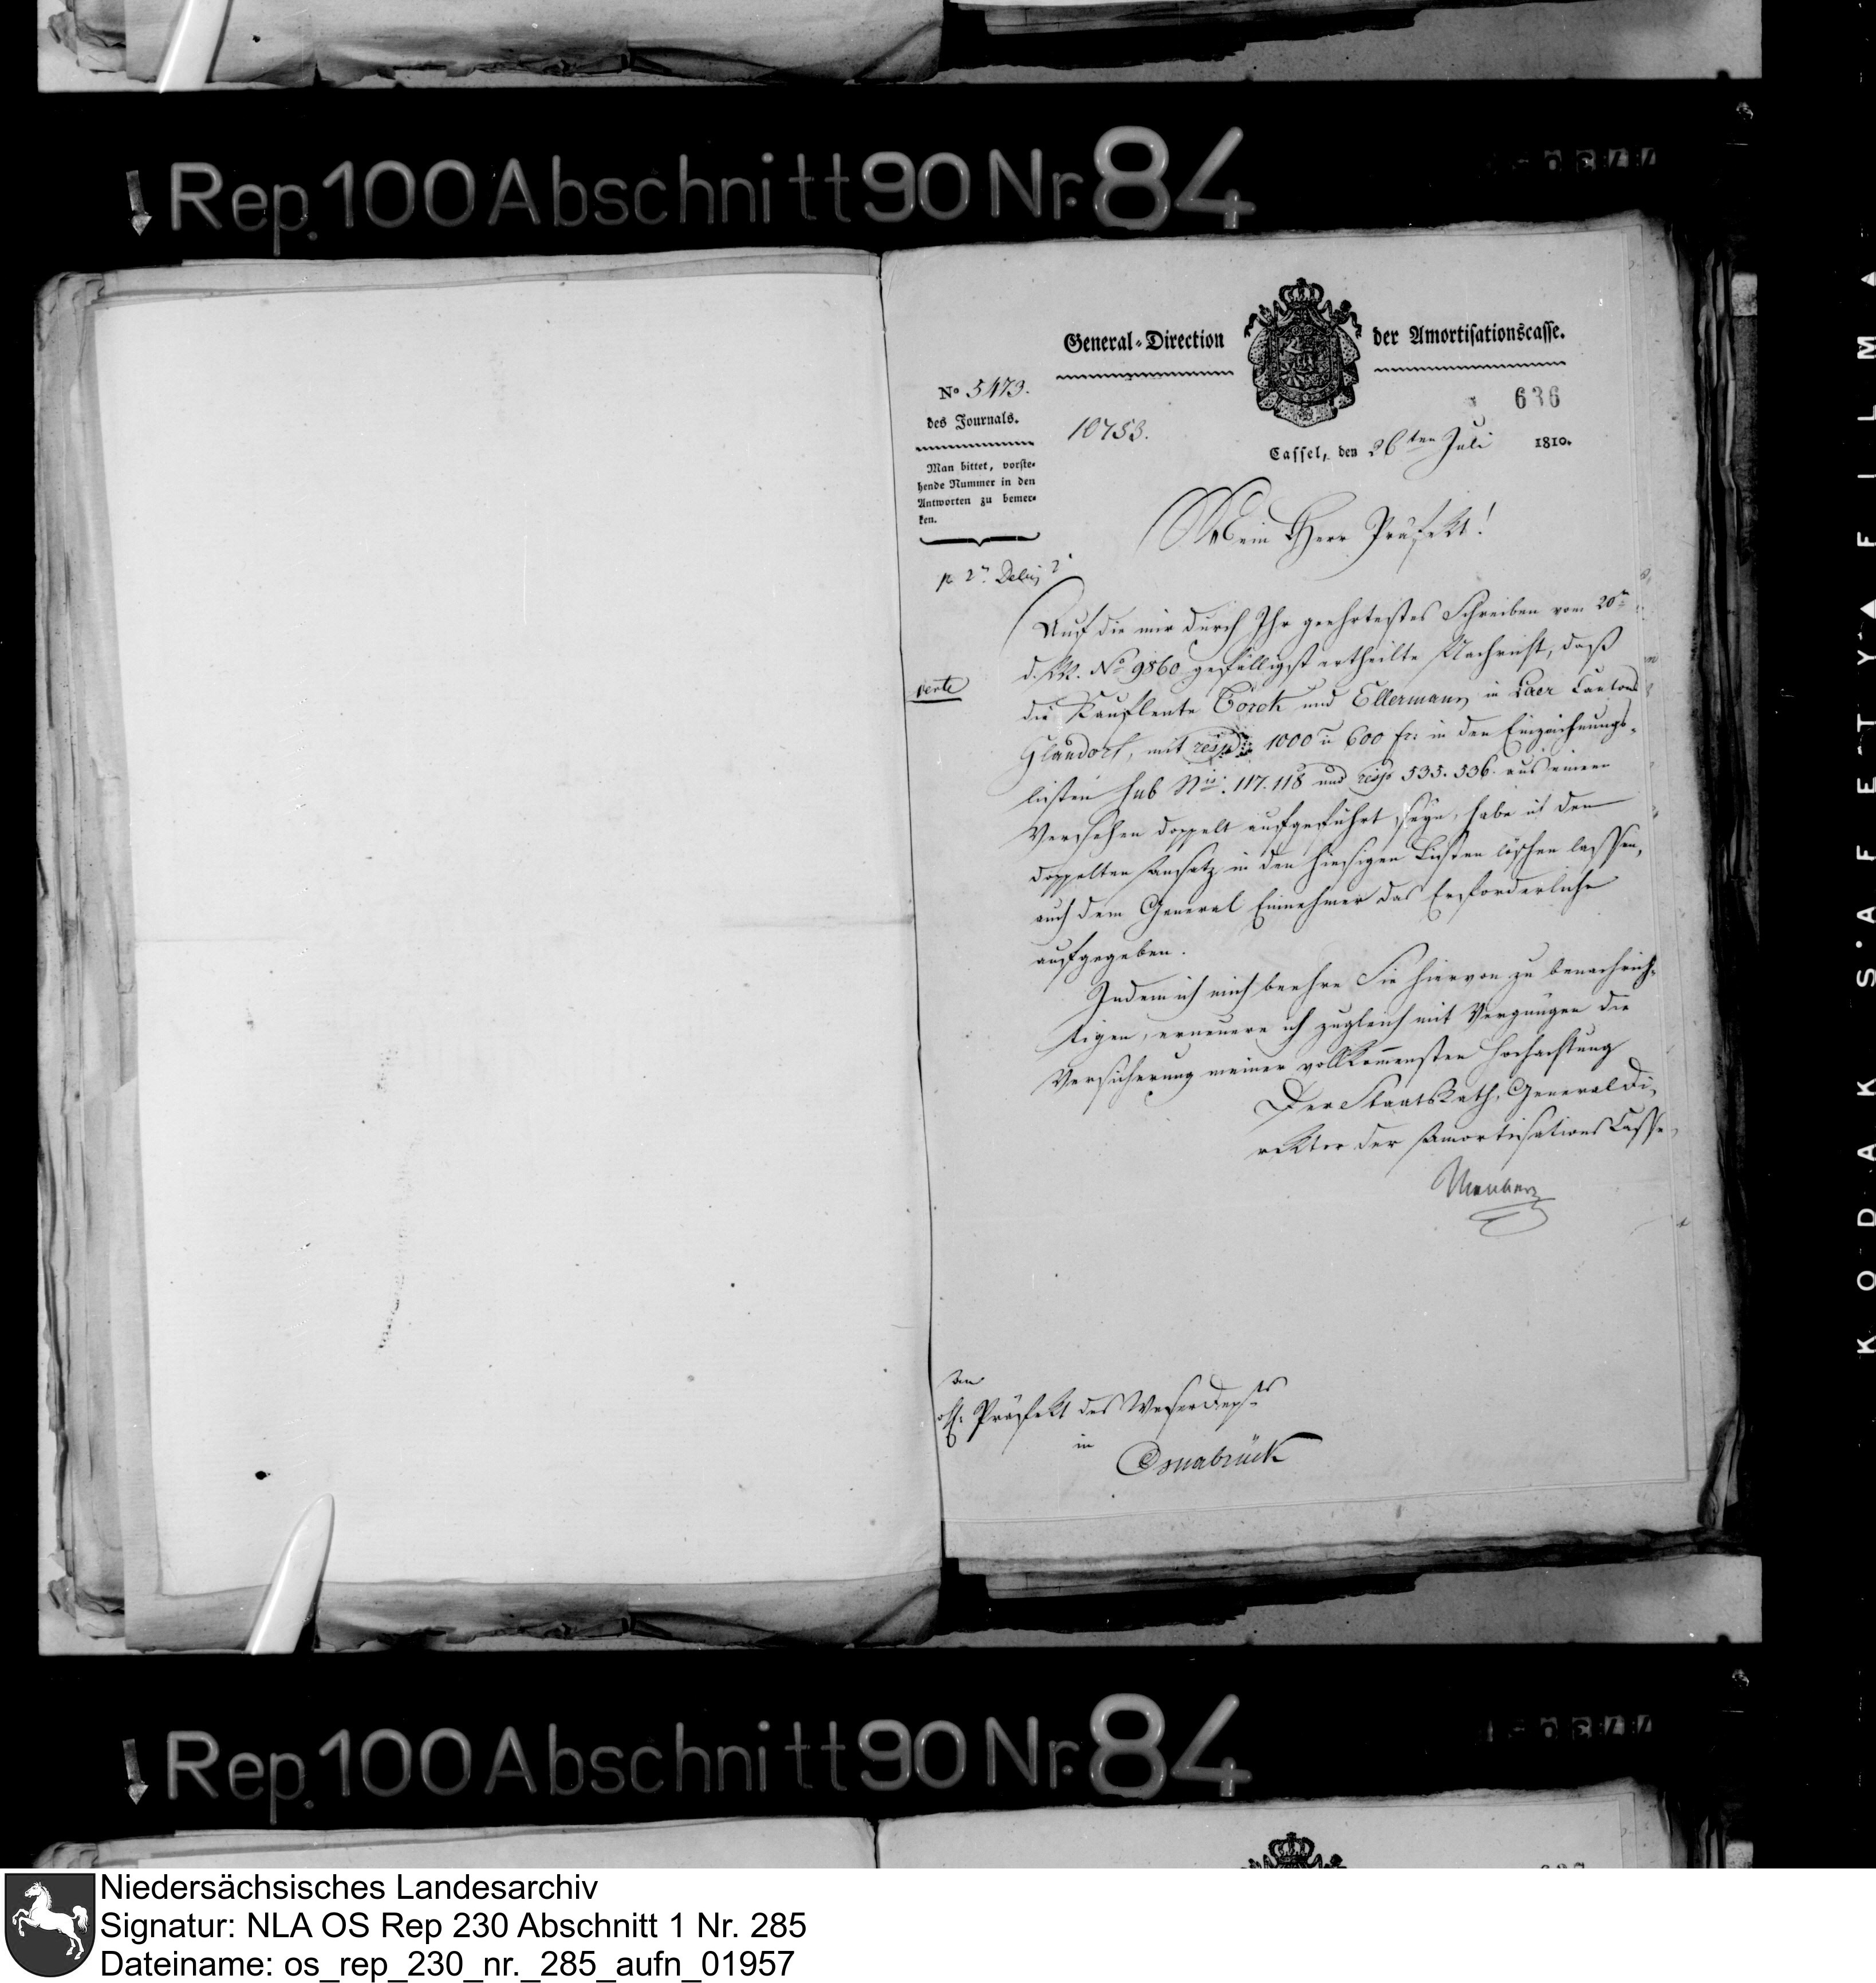 Rep. 100 Abschnitt 90 Nr. 84
General-Direction der Amortisationscasse.
No 5473.
des Journals.
636
10753.
Cassel, den 26ten Juli 1810.
Man bittet, vorste-
hende Nummer in den
Antworten zu bemer-
ken.
Mein Herr Präfekt!
Auf die mir durch Ihr geehrtestes Schreiben vom 20n
d. M. No 9860 gefälligst ertheilte Nachricht, daß
verte
die Kaufleute und Ellermann in Laer Cantons
Glandorf, mit resp: 1000 u 600 fr: in den Einzeichnungs-
listen sub Nis: 117. 118 und resp 535. 536. aus einem
Versehen doppelt aufgeführt seyn, habe ich den
doppelten Ansatz in den hiesigen Listen löschen lassen,
auch dem General Einnehmer das Erforderliche
aufgegeben.
Indem ich mich beehre Sie hiervon zu benachrich-
tigen, erneuere ich zugleich mit Vergnügen die
Versicherung meiner vollkommensten Hochachtung
Der Staatsrath, General Di-
rektor der Amortisations Casse,
An
Präfekt des Weser Depts
in
Osnabrück
KODAK SAFETY FILM
Rep. 100 Abschnitt 90 Nr. 84
Niedersächsisches Landesarchiv
Signatur: NLA OS Rep 230 Abschnitt 1 Nr. 285
Dateiname: os_rep_230_nr._285_aufn_01957